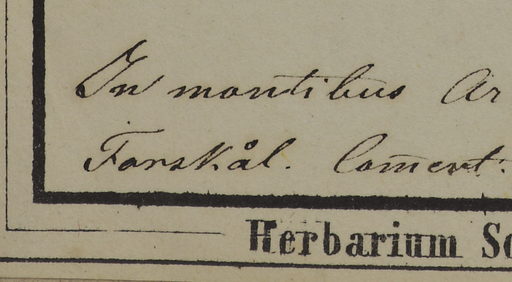 In montibus Ar
Forskål. Coment:
Herbarium Sc